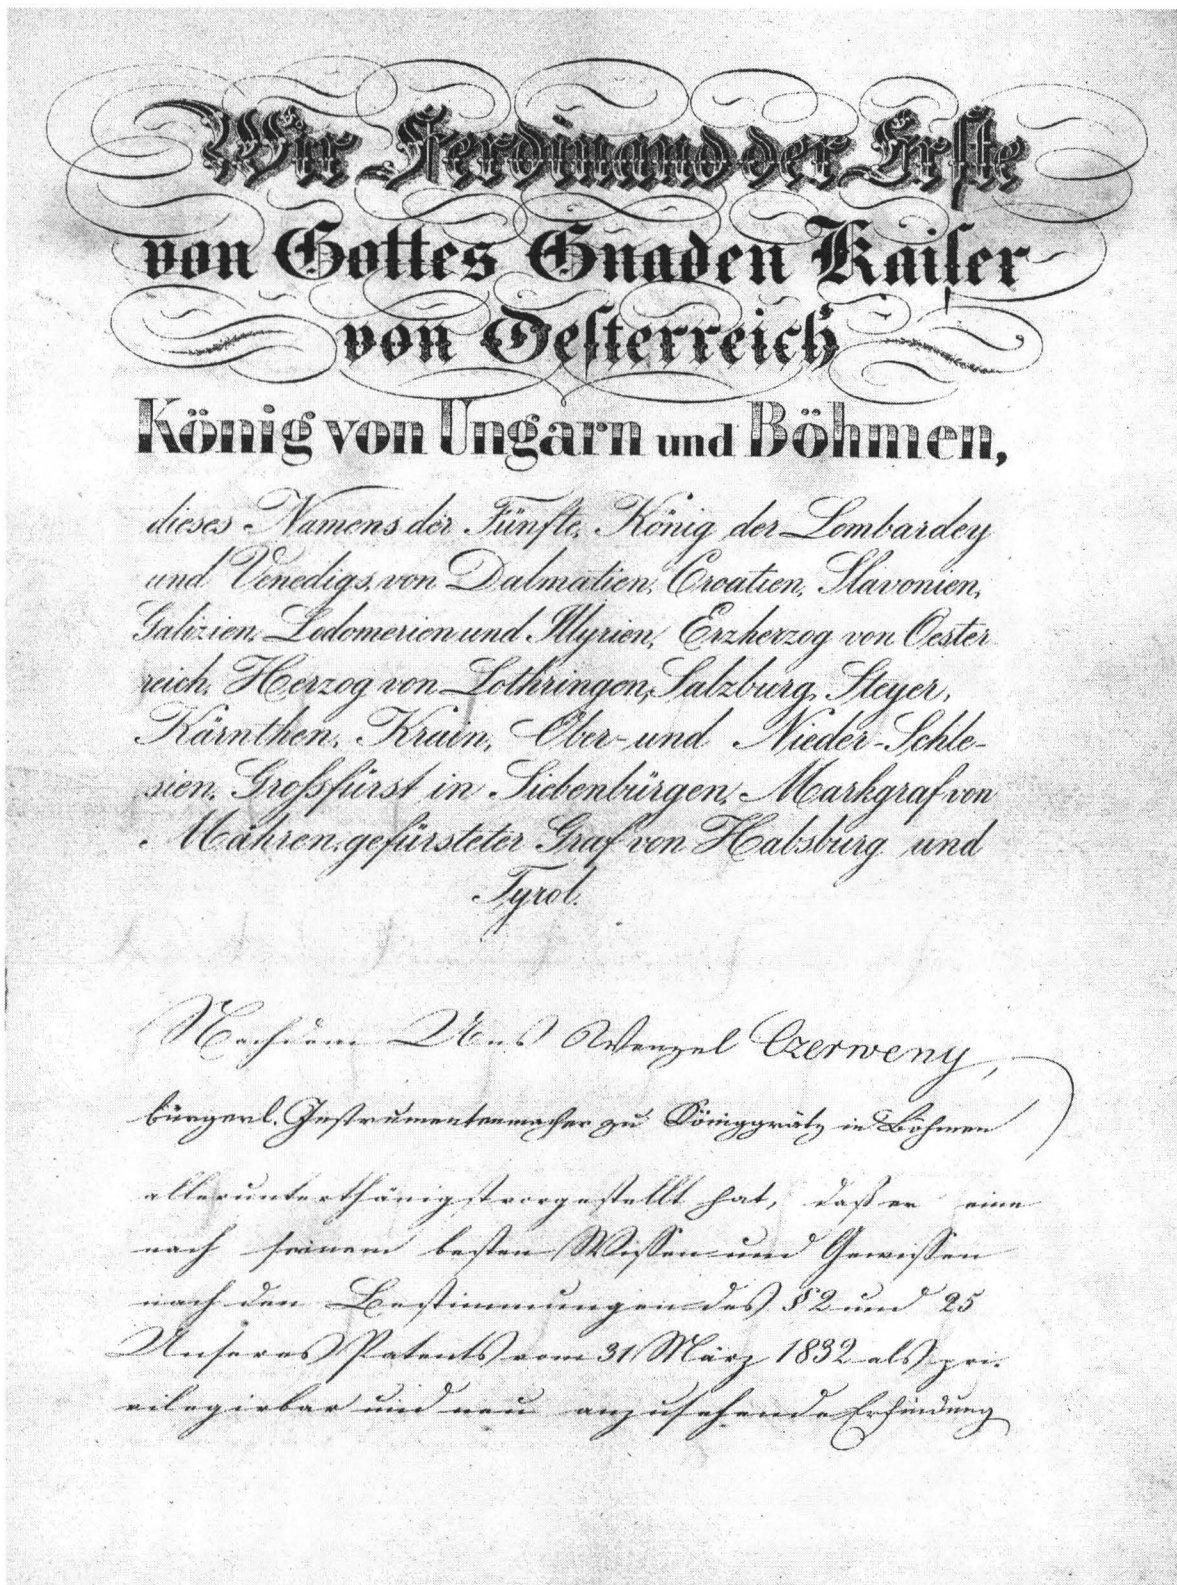 Wir Ferdinand der Erste
von Gottes Gnaden Kaiser
von Oesterreich
König von Ungarn und Böhmen,
dieses Namens der Fünfte, König der Lombardey
und Venedigs, von Dalmatien, Croatien, Slavonien,
Galizien, Lodomerien und Illyrien, Erzherzog von Oester
reich, Herzog von Lothringen, Salzburg, Steyer,
Kärnthen, Krain, Ober- und Nieder-Schle-
sien, Grossfürst in Siebenbürgen, Markgraf von
Mähren, gefürsteter Graf von Habsburg und
Tyrol.
Nachdem Uns Wenzel Czerweny,
bürgerl. Instrumentenmacher zu Königgrätz in Böhmen
allerunterthänigst vorgestellt hat, daß er eine
nach seinem besten Wissen und Gewissen
nach den Bestimmungen des § 2 und 25
Unseres Patents vom 31 März 1832 als pri-
vilegirbar und neu anzusehende Erfindung